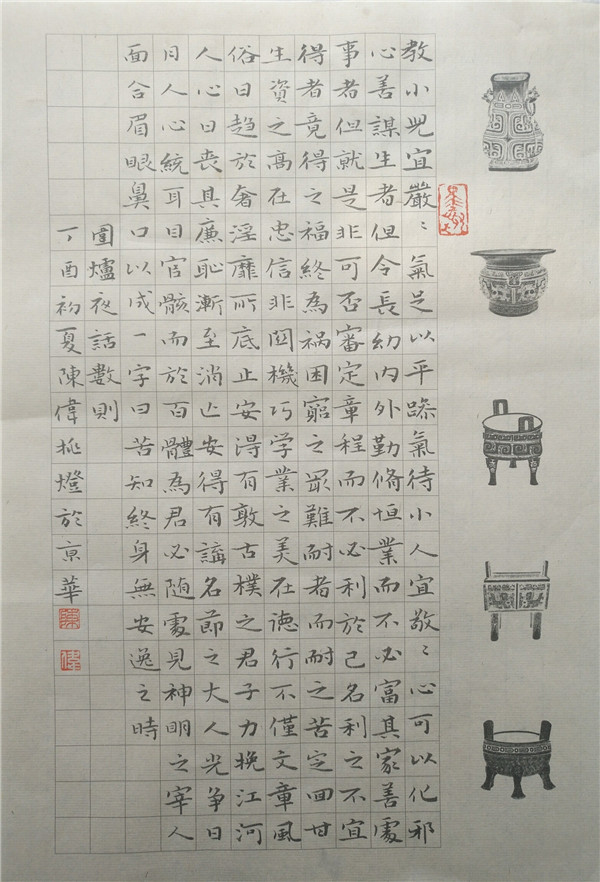 教小兒宜嚴〻氣足以平躁氣待小人宜敬〻心可以化邪
心善謀生者但令長幼内外勤脩恒業而不必富其家善處
事者但就是非可否審定章程而不必利於己名利之不宜
得者竟得之福終為祸困窮之㝡難耐者而耐之苦定回甘
生資之高在忠信非關機巧学業之美在德行不僅文章風
俗日趨於奢淫靡所底止安得有敦古樸之君子力挽江河
人心日喪其廉恥漸至消亾安得有講名節之大人光争日
月人心統耳目官骸而於百體為君必随處見神明之宰人
面合眉眼鼻口以成一字曰苦知終身無安逸之時
圍爐夜話數則
丁酉初夏陳偉挑燈於京華
陳
偉